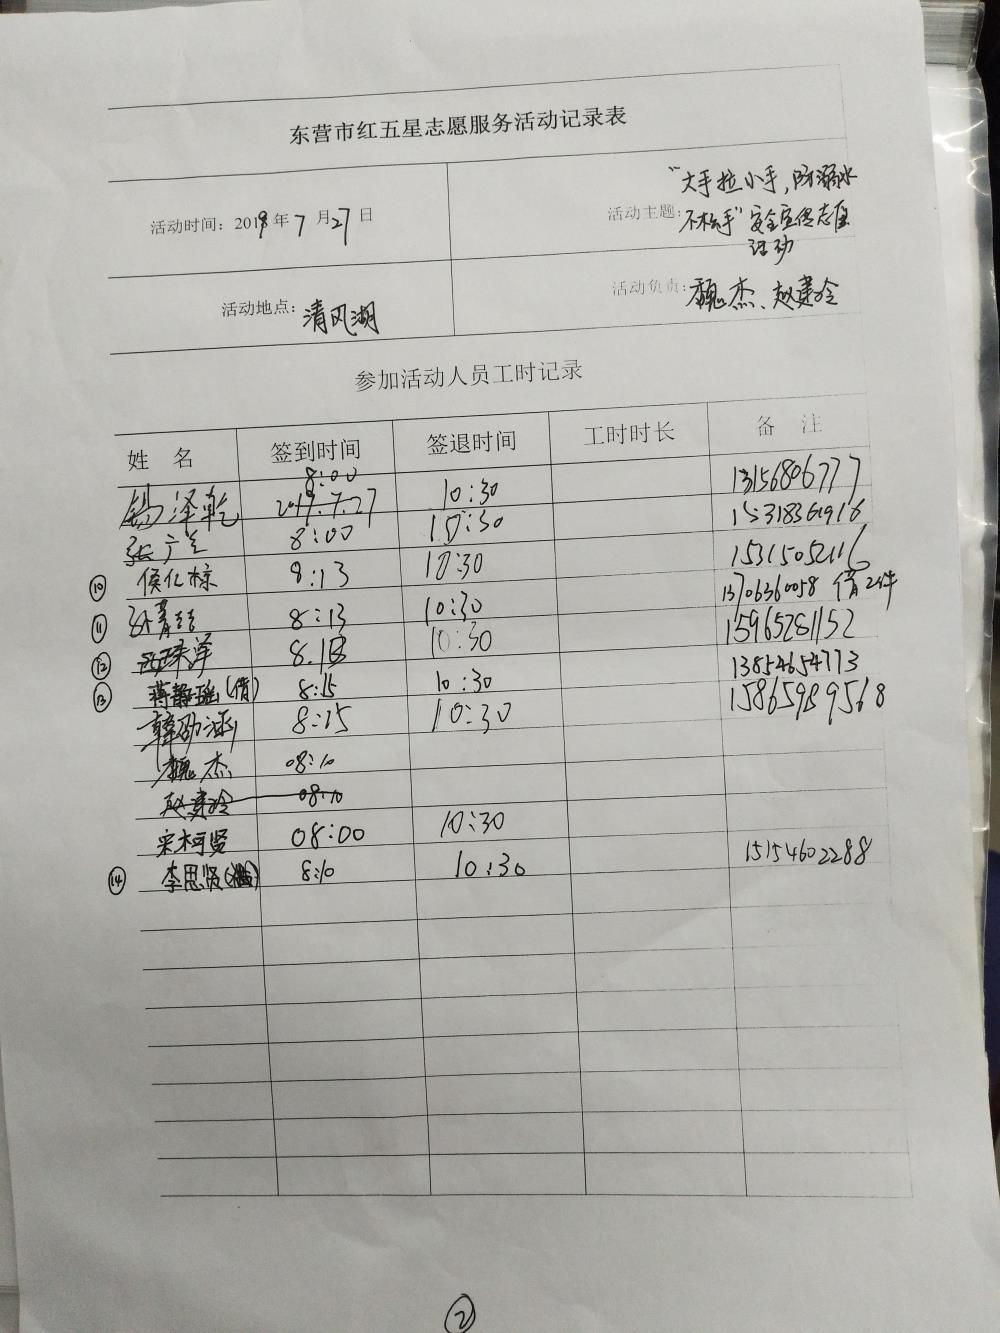 东营市红五星志愿服务活动记录表
活动时间: 2019年7月27日
活动主题: "大手拉小手,防溺水
不松手"安全宣传志愿
活动
活动地点: 清风湖
活动负责: 魏杰、赵
参加活动人员工时记录
姓 名 签到时间 签退时间 工时时长 备 注
泽乾 8:00 2019.7.27 10:30 13156806777
张广 8:00 10:30
⑩ 侯化棕 8:13 10:30 15315052116
⑪ 8:13 10:30 13706360058 借2件
⑫ 8.18 10:30 15965281152
⑬ 蒋静瑶(借) 8:15 10:30 13854654773
韩 涵 8:15 10:30 15865989568
魏杰 08:10
赵 08:10
宋柯贤 08:00 10:30
⑭ 李思贤 8:10 10:30 15154602288
②